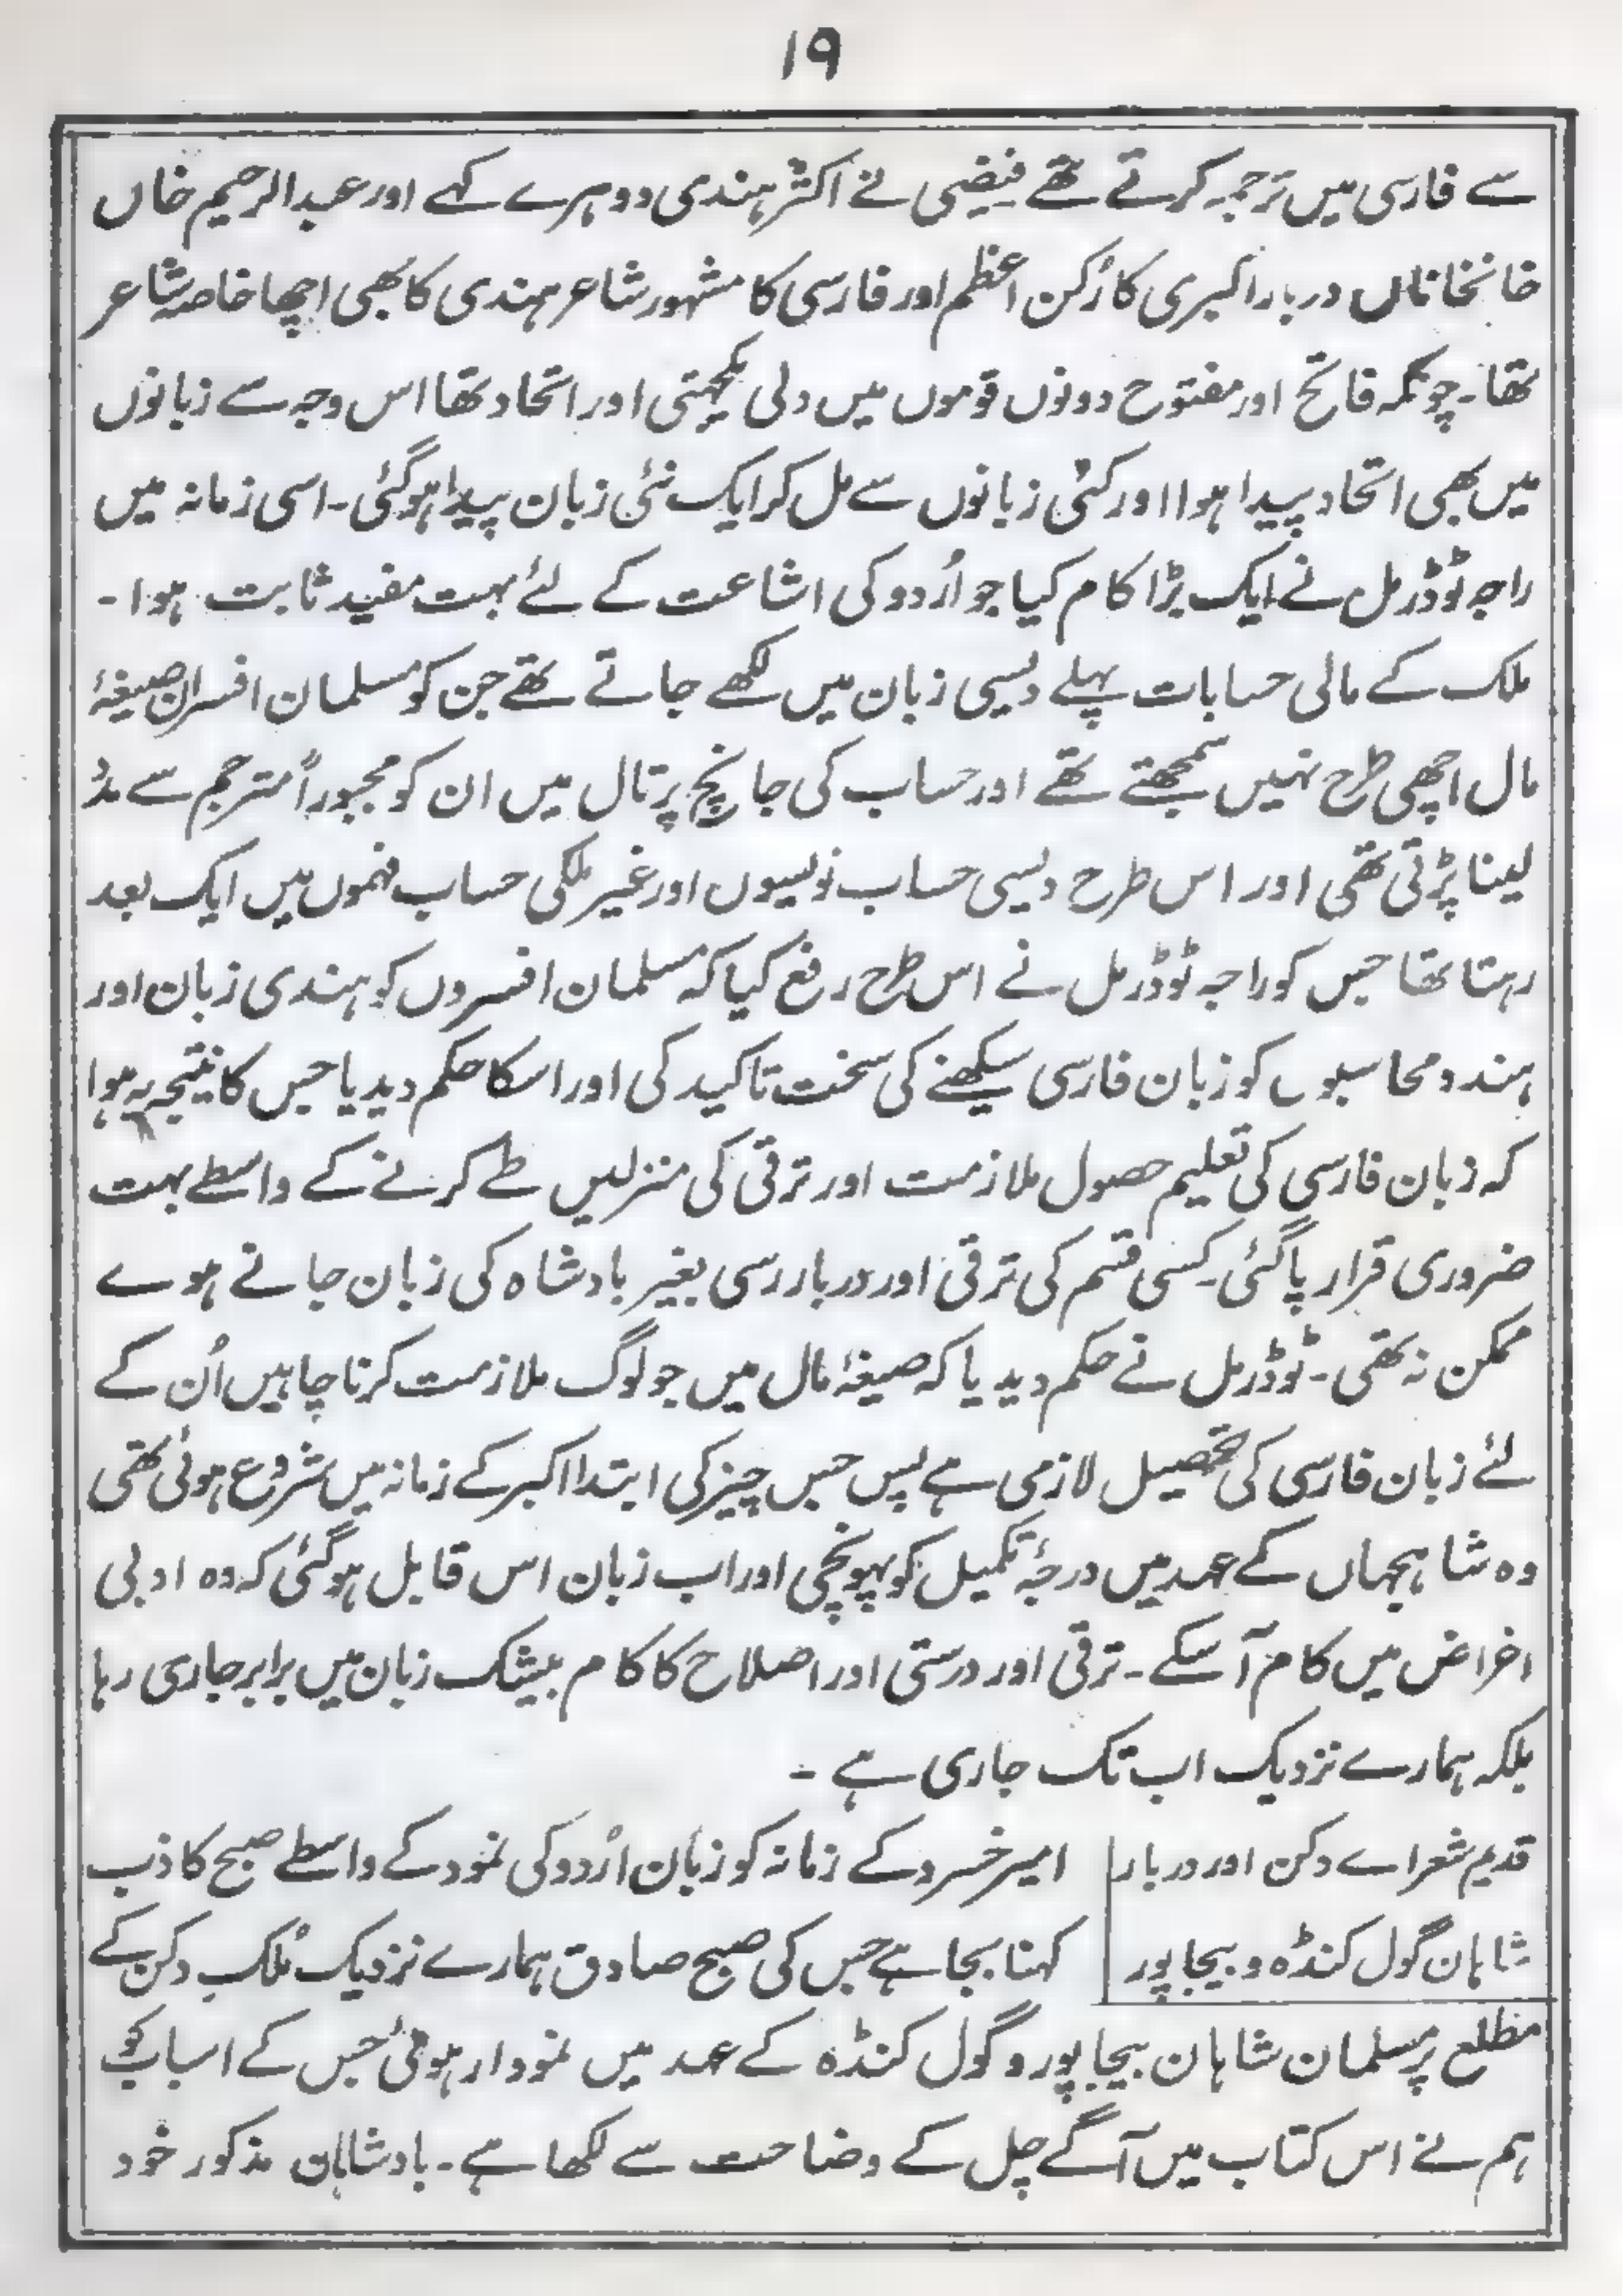 ۱۹
سے فارسی میں ترجمہ کرتے تھے فیضی نے اکثر ہندی دوہرے کہے اور عبدالرحیم خاں
خانخاناں دربار اکبری کا رُکن اعظم اور فارسی کا مشہور شاعر ہندی کا بھی اچھا خاصہ شاعر
تھا۔ چونکہ فاتح اور مفتوح دونوں قوموں میں دلی یکجہتی اور اتحاد تھا اس وجہ سے زبانوں
میں بھی اتحاد پیدا ہوا اور کئی زبانوں سے مل کر ایک نئی زبان پیدا ہوگئی۔ اسی زمانہ میں
راجہ ٹوڈرمل نے ایک بڑا کام کیا جو اُردو کی اشاعت کے لئے بہت مفید ثابت ہوا۔
ملک کے مالی حسابات پہلے دیسی زبان میں لکھے جاتے تھے جن کو مسلمان افسران صیغۂ
مال اچھی طرح نہیں سمجھتے تھے اور حساب کی جانچ پرتال میں ان کو مجبوراً مترجم سے مدد
لینا پڑتی تھی اور اس طرح دیسی حساب نویسیوں اور غیر ملکی حساب فہموں میں ایک بعد
رہتا تھا جس کو راجہ ٹوڈرمل نے اس طرح رفع کیا کہ مسلمان افسروں کو ہندی زبان اور
ہندو محاسبوں کو زبان فارسی سیکھنے کی سخت تاکید کی اور اسکا حکم دیدیا جس کا نتیجہ یہ ہوا
کہ زبان فارسی کی تعلیم حصول ملازمت اور ترقی کی منزلیں طے کرنے کے واسطے بہت
ضروری قرار پاگئی۔ کسی قسم کی ترقی اور دربار رسی بغیر بادشاہ کی زبان جانے ہوے
ممکن نہ تھی۔ ٹوڈرمل نے حکم دیدیا کہ صیغۂ مال میں جو لوگ ملازمت کرنا چاہیں اُن کے
لئے زبان فارسی کی تحصیل لازمی ہے پس جس چیز کی ابتدا اکبر کے زمانہ میں شروع ہوئی تھی
وہ شاہجہاں کے عہد میں درجۂ تکمیل کو پہونچی اور اب زبان اس قابل ہوگئی کہ وہ ادبی
اغراض میں کام آسکے۔ ترقی اور درستی اور اصلاح کا کام بیشک زبان میں برابر جاری رہا
بلکہ ہمارے نزدیک اب تک جاری ہے۔
قدیم شعراے دکن اور دربار امیر خسرو کے زمانہ کو زبان اُردو کی نمود کے واسطے صبح کاذب
شاہان گول کنڈہ و بیجاپور کہنا بجا ہے جس کی صبح صادق ہمارے نزدیک مُلک دکن کے
مطلع پر مسلمان شاہان بیجاپور و گول کنڈہ کے عہد میں نمودار ہوئی جس کے اسباب کو
ہم نے اس کتاب میں آگے چل کے وضاحت سے لکھا ہے۔ بادشاہان مذکور خود